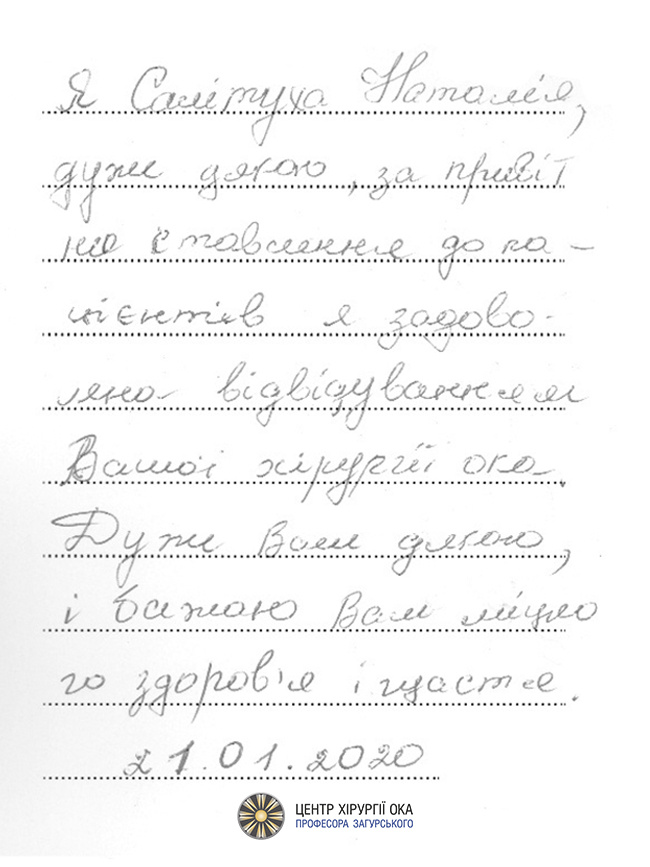 Я Салітуха Наталія,
дуже дякую, за привіт
не ставлення до па-
цієнтів я задово-
лена відвідуванням
Вашої хірургії ока.
Дуже Вам дякую,
і бажаю Вам міцно
го здоров'я і щастя.
21.01.2020
ЦЕНТР ХІРУРГІЇ ОКА
ПРОФЕСОРА ЗАГУРСЬКОГО